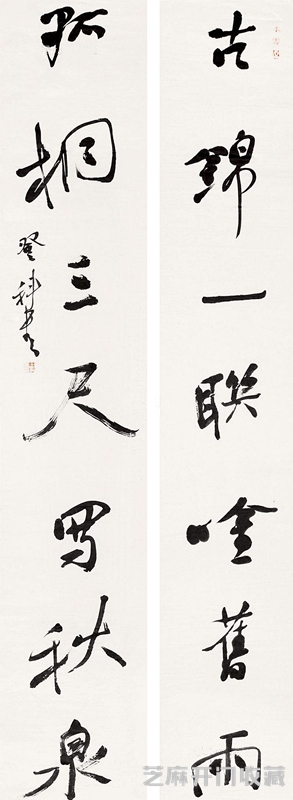 古錦一聯唫舊雨
孤桐三尺寫秋泉
登科書
芝麻开门收藏